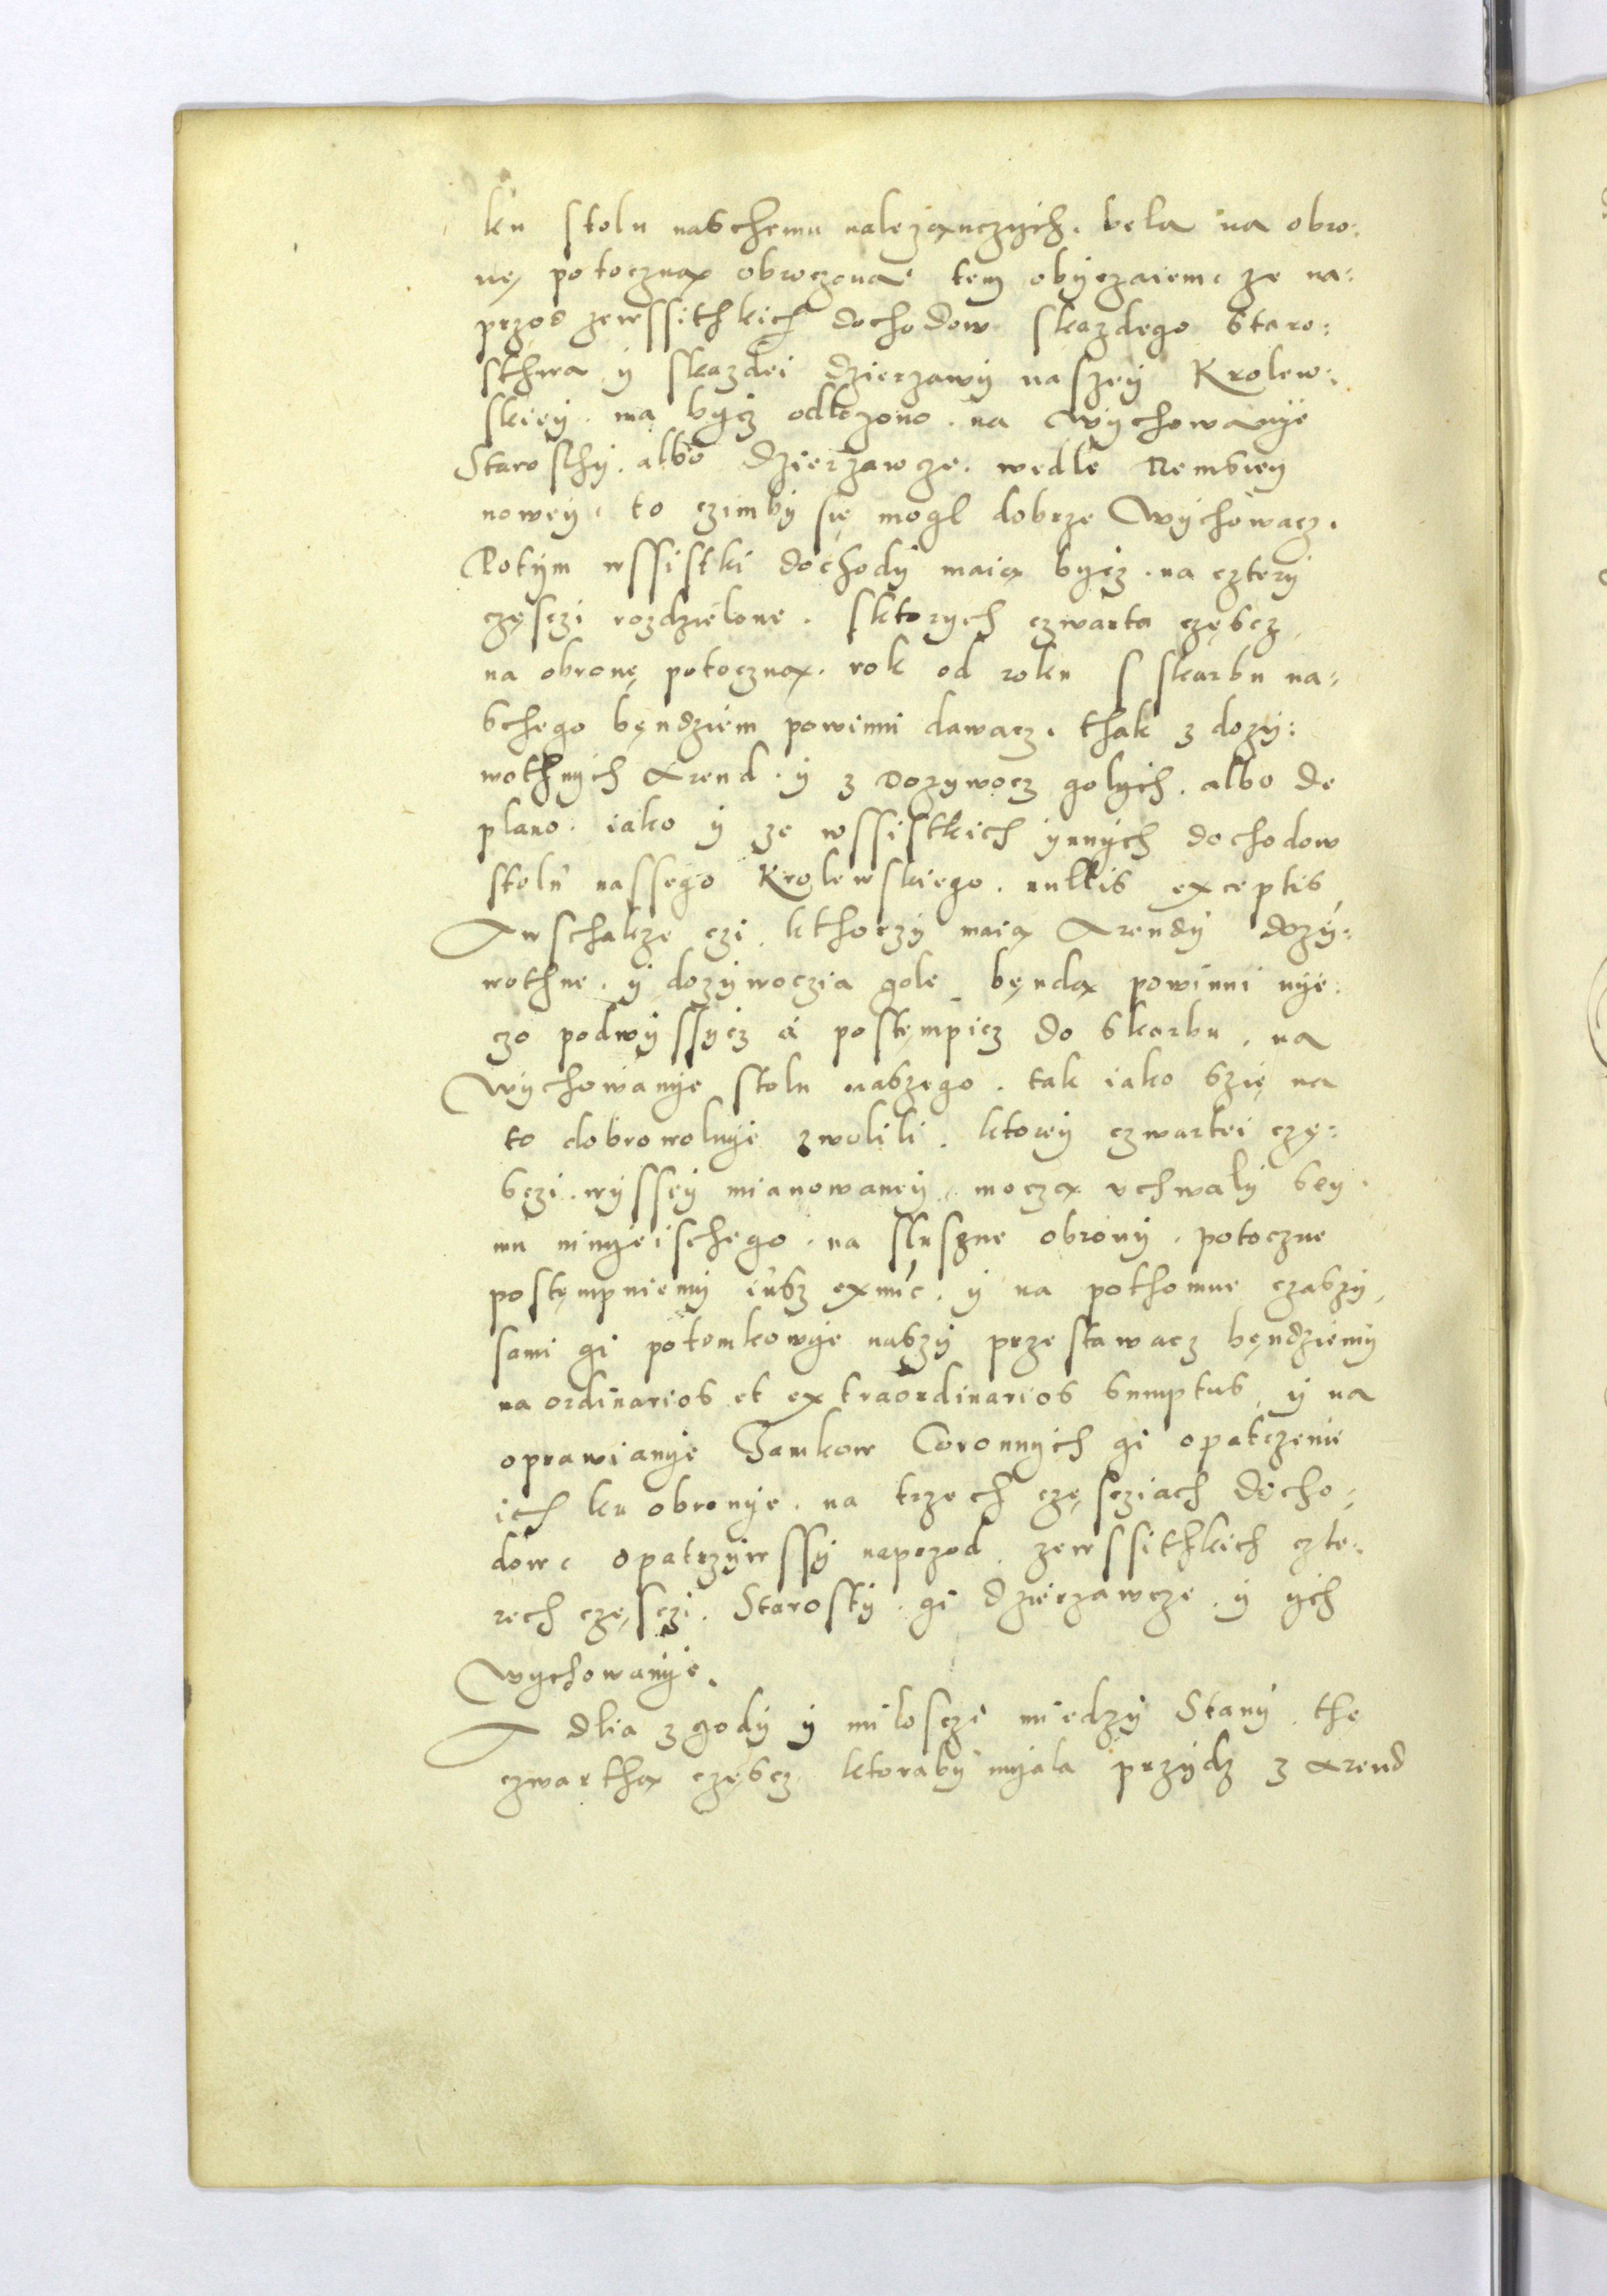 ku stolu naschemu nalezanczych. bela na obro:
nę potoczną obroczona tem obyczaiem. ze na:
przod zewssithkich dochodow skazdego staro:
sthwa y skazdei dzierzawy naszey Krolew:
skiey. ma bycz odlozono. na wychowanye
Starosthy. albo dzierzawcze. wedle Remscy
nowey. to czimby się mogl dobrze wychowacz.
Potym wssistki dochody maią bycz. na cztery
częsczi rozdzielone. sktorych czwarta częscz
na obronę potoczną. rok od roku s skarbu na:
schego bęndziem powinni dawacz. thak z dozy:
wothnych Arend. y z dozywocz golych. albo de
plano. iako y ze wssistkich ynnych dochodow
stolu nassego Krolewskiego. nullis exceptis
Awschakze czi kthorzy maią Arendy dozy:
wothne. y dozywoczia gole bęndą powinni nye:
czo podwyssycz a postęmpicz do skarbu. na
wychowanye stolu naszego. tak iako szię na
to dobrowolnye zwolili. ktorey czwartei czę:
sczi. wyssey mianowaney. moczą uchwaly sey:
mu ninyeischego. na sluszne obrony. potoczne
postęmpniemy iusz ex nunc. y na pothomne czaszy
sami gi potomkowye naszy przestawacz bęndziemy
na ordinarios et extraordinarios sumptus y na
oprawianye Zamkow Coronnych gi opatrzenie
ich ku obronye. na trzech częscziach docho:
dow. opatrzywssy naprzod zewssithkich czte:
rech częsczi. Starosty. gi dzierzawcze. y ych
wychowanye.
A dlia zgody y milosczi miedzy Stany. the
czwarthą częscz ktoraby myala przydz z Arend